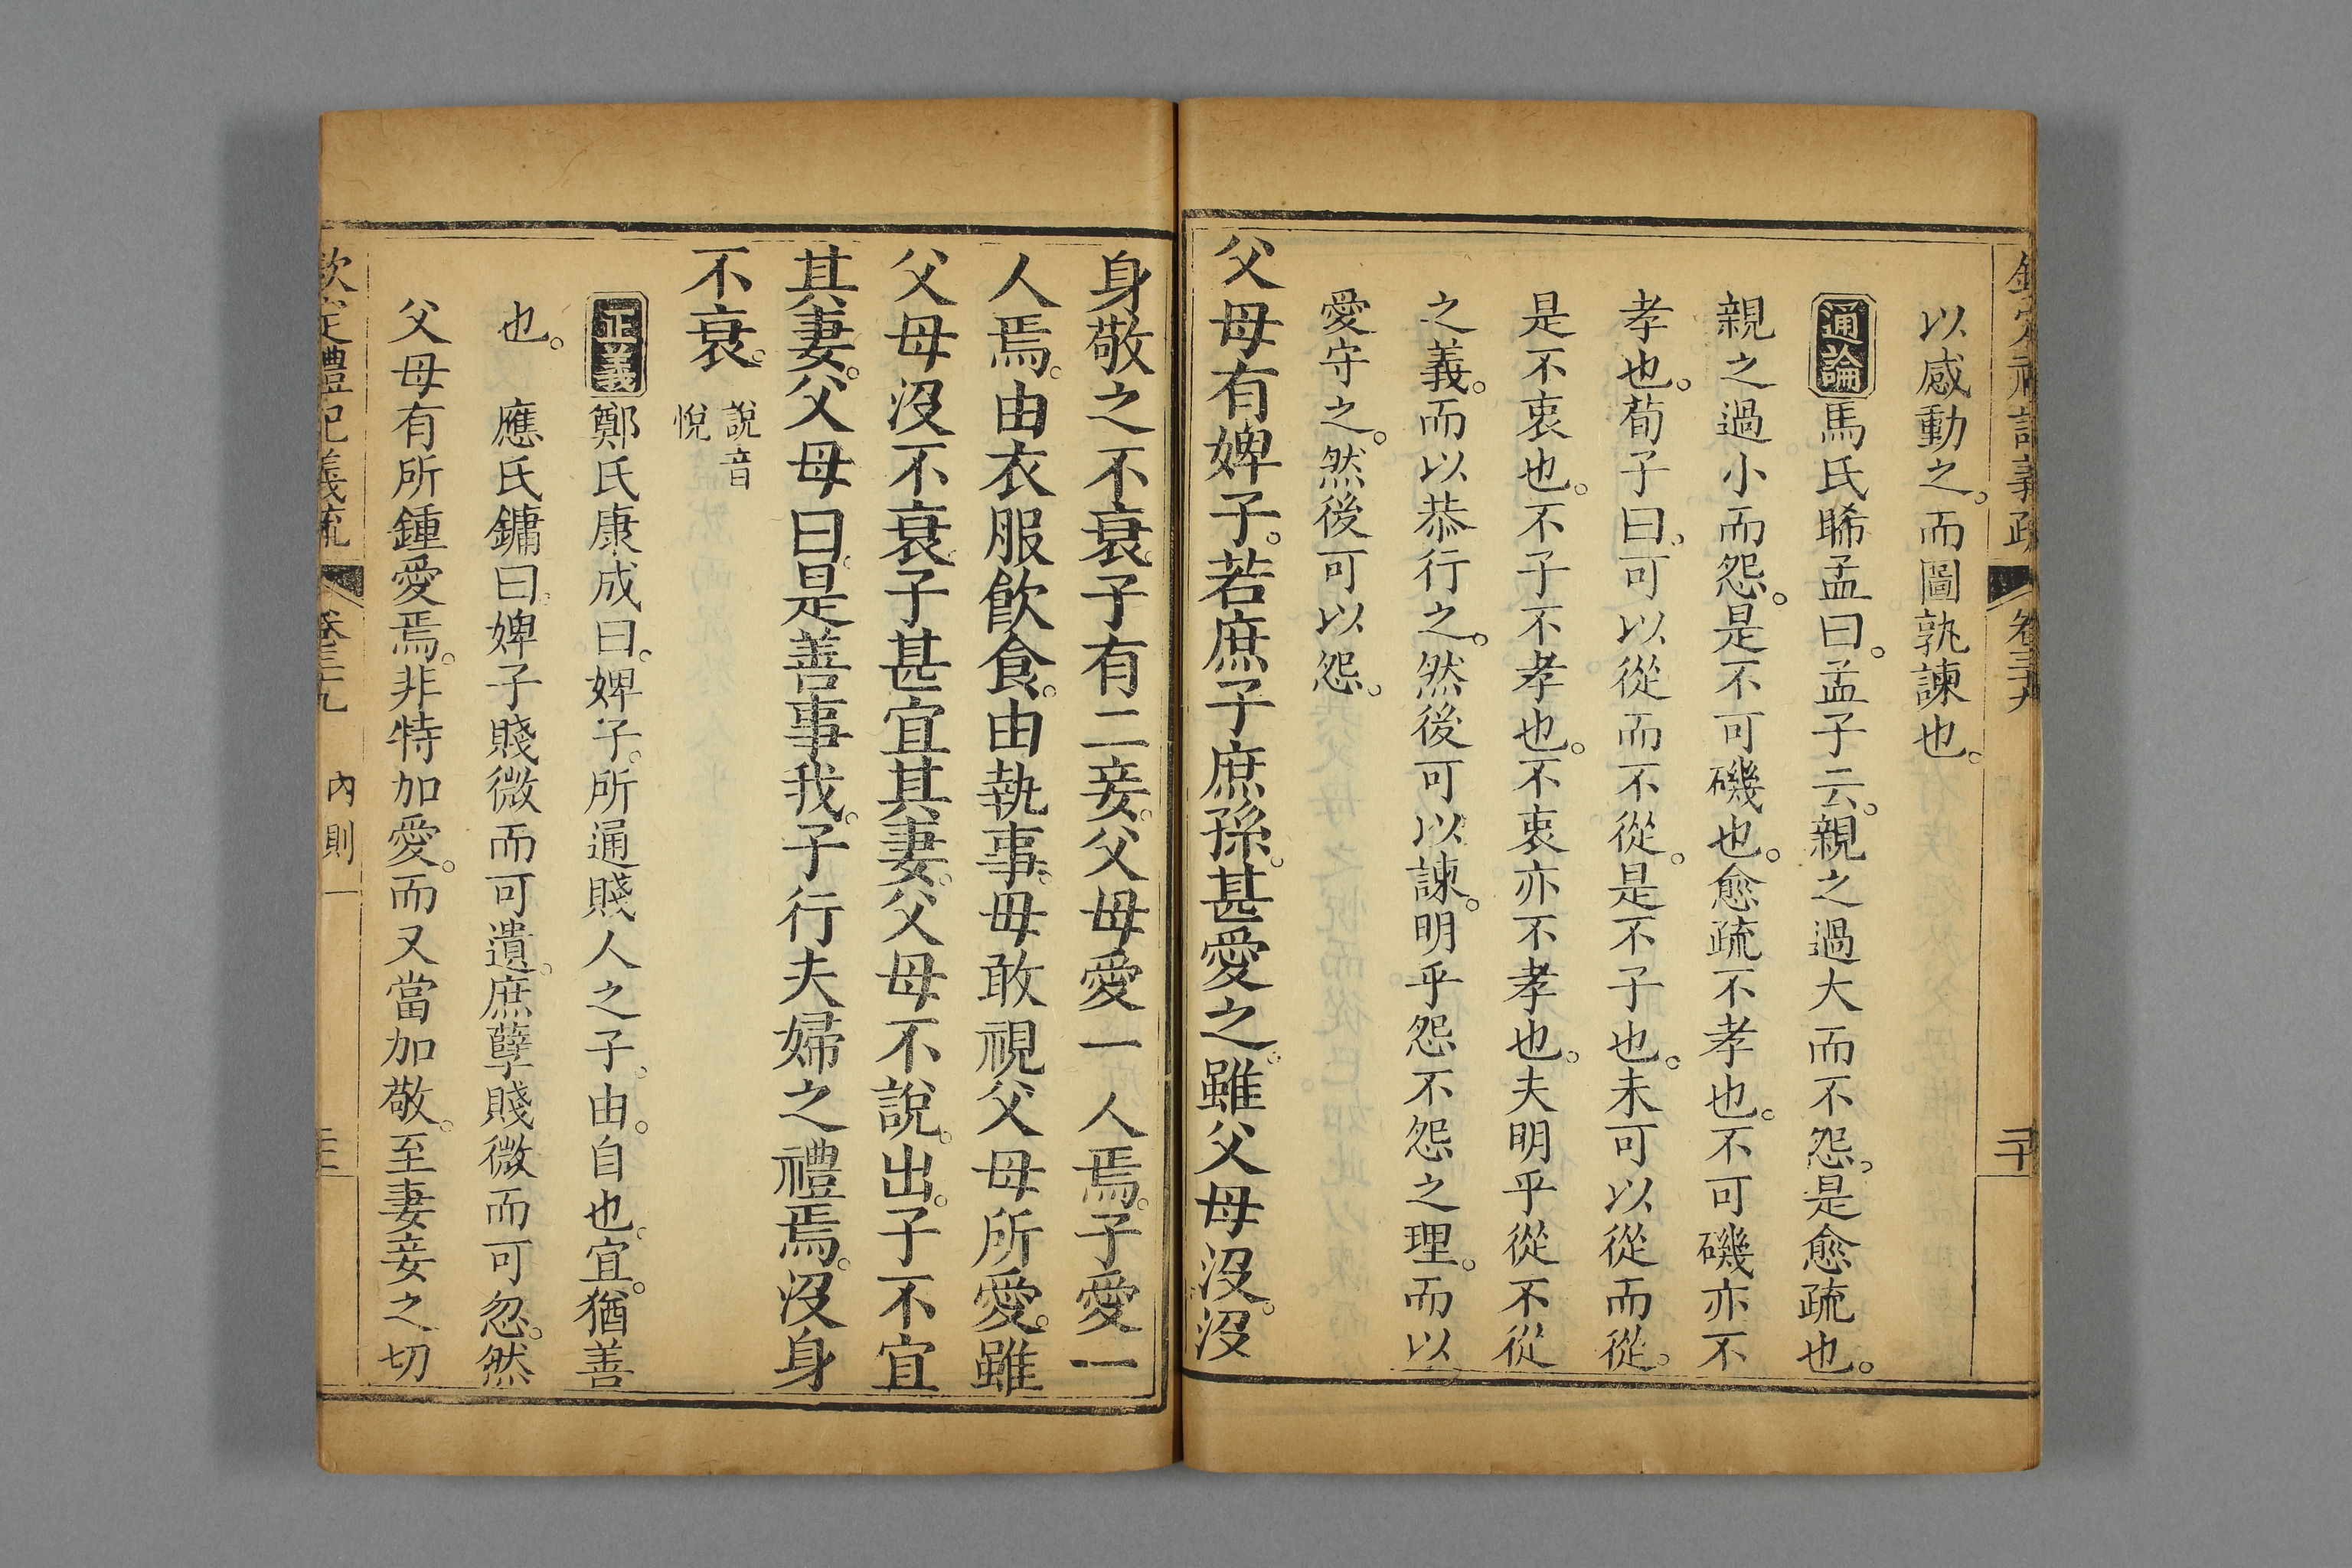 以感動之。而圖孰諫也。
通論馬氏睎孟曰。孟子云。親之過大而不怨。是愈疏也。
親之過小而怨。是不可磯也。愈疏不孝也。不可磯亦不
孝也。荀子曰。可以從而不從。是不子也。未可以從而從。
是不衷也。不子不孝也。不衷亦不孝也。夫明乎從不從
之義。而以恭行之。然後可以諫。明乎怨不怨之理。而以
愛守之。然後可以怨。
父母有婢子。若庶子庶孫。甚愛之。雖父母沒。沒
身敬之不衰。子有二妾。父母愛一人焉。子愛一
人焉。由衣服飲食。由執事。毋敢視父母所愛。雖
父母沒不衰。子甚宜其妻。父母不說。出。子不宜
其妻。父母曰。是善事我。子行夫婦之禮焉。沒身
不衰。說音
悅
正義鄭氏康成曰。婢子。所通賤人之子。由。自也。宜。猶善
也。 應氏鏞曰。婢子賤微而可遺。庶孽賤微而可忽。然
父母有所鍾愛焉。非特加愛。而又當加敬。至妻妾之切
欽定禮記義疏 卷三十九 內則一